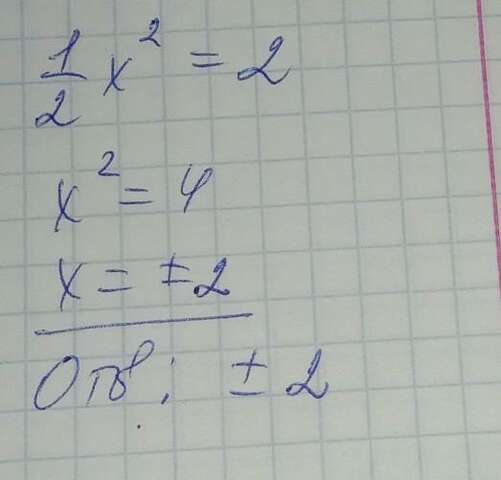 1/2 x² = 2
x² = 4
x = ±2
Отв: ±2